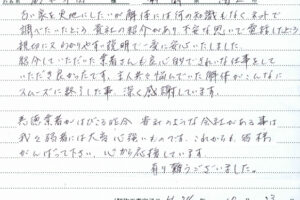 古い家を更地にしたいが解体には何の知識もなく、ネットで
調べたいたところ貴社の紹介があり不安な思いで電話したところ
親切に又わかりやすい説明で一度に安心いたしました。
紹介していただいた業者さんも良心的できれいな仕事をして
いただき良かったです。まえ々々悩んでいた解体がこんなに
スムーズに終了した事、深く感謝しています。
悪徳業者がはびこる昨今 貴社のような会社がある事は
我々弱者には大変心強いものです。これからも 皆様
がんばって下さい。心から応援しています。
有り難うございました。